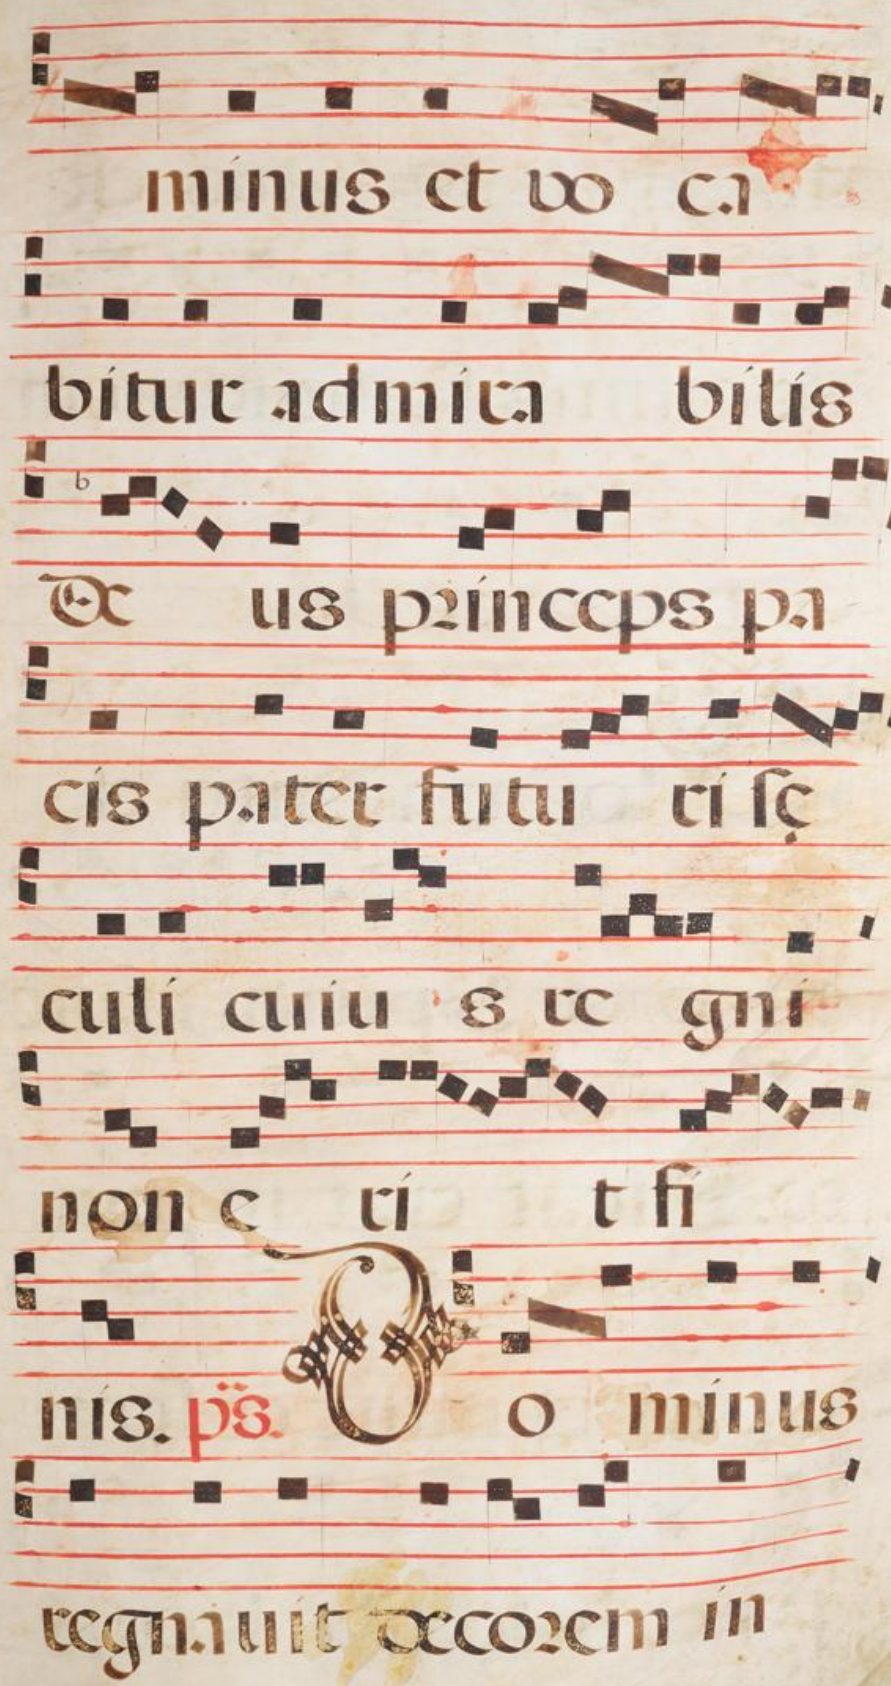 minus et vo ca
bitur admira bilis
b
De us princeps pa
cis pater futu ri sę
culi cuiu s re gni
non e ri t fi
nis. ps. Do minus
regnavit decorem in